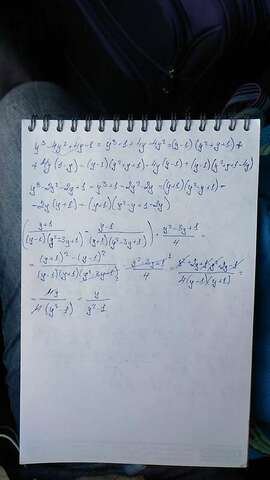 y³-4y²+4y-1 = y³-1+4y-4y² = (y-1)(y²+y+1)+
+4y(1-y) = (y-1)(y²+y+1)-4y(y-1) = (y-1)(y²+y+1-4y)
y³-2y²-2y+1 = y³+1-2y²-2y = (y+1)(y²-y+1)-
-2y(y+1) = (y+1)(y²-y+1-2y)
(y+1/(y-1)(y²-3y+1) - y-1/(y+1)(y²-3y+1)) · y²-3y+1/4 =
= (y+1)²-(y-1)²/(y-1)(y+1)(y²-3y+1) · y²-3y+1/4 = y²+2y+1-y²+2y-1/4(y-1)(y+1) =
= 4y/4(y²-1) = y/y²-1